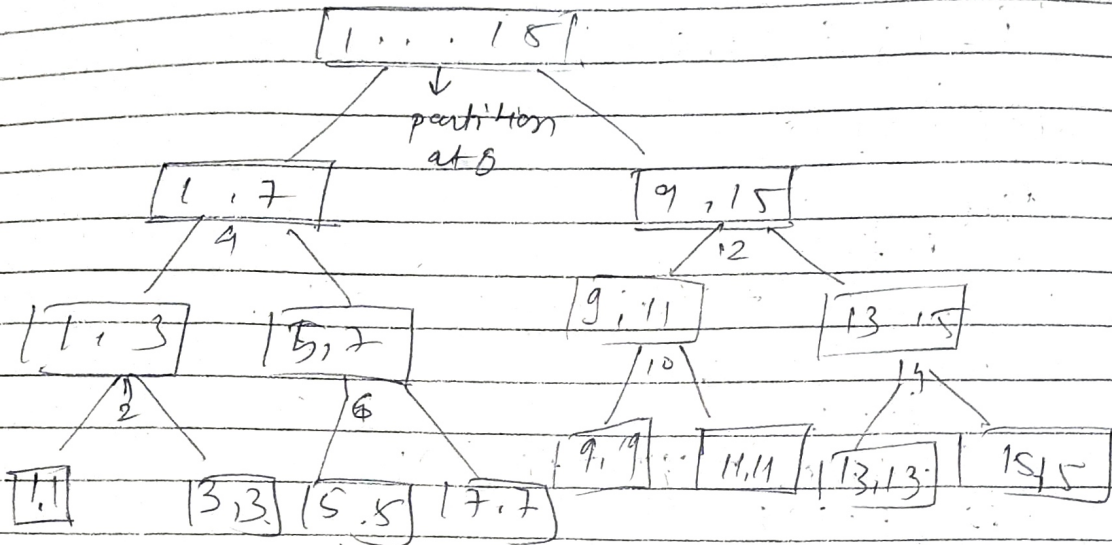 1 . . . 15
partition
at 8
1 , 7
9 , 15
4
12
1 , 3
5, 7
9, 11
13 15
2
6
10
14
1,1
3,3
5.5
7.7
9,9
11,11
13,13
15,15